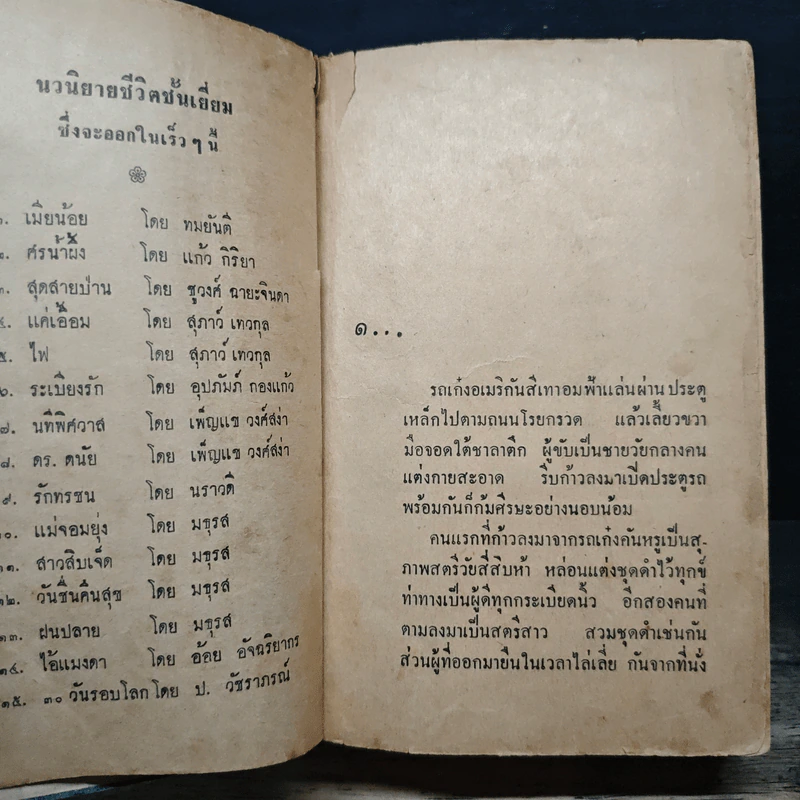 นวนิยายชีวิตชั้นเยี่ยม
ซึ่งจะออกในเร็ว ๆ นี้
๑. เมียน้อย โดย ทมยันตี
๒. ศรน้ำผึ้ง โดย แก้ว กิริยา
๓. สุดสายป่าน โดย ชูวงศ์ ฉายะจินดา
๔. แค่เอื้อม โดย สุภาว์ เทวกุล
๕. ไฟ โดย สุภาว์ เทวกุล
๖. ระเบียงรัก โดย อุปภัมภ์ กองแก้ว
๗. นทีพิศวาส โดย เพ็ญแข วงศ์สง่า
๘. ดร. ดนัย โดย เพ็ญแข วงศ์สง่า
๙. รักทรชน โดย นราวดี
๑๐. แม่จอมยุ่ง โดย มธุรส
๑๑. สาวสิบเจ็ด โดย มธุรส
๑๒. วันชื่นคืนสุข โดย มธุรส
๑๓. ฝนปลาย โดย มธุรส
๑๔. ไอ้แมงดา โดย อ้อย อัจฉริยากร
๑๕. ๓๐ วันรอบโลก โดย ป. วัชราภรณ์
๑...
รถเก๋งอเมริกันสีเทาอมฟ้าแล่นผ่านประตู
เหล็กไปตามถนนโรยกรวด แล้วเลี้ยวขวา
มือจอดใต้ชาลาตึก ผู้ขับเป็นชายวัยกลางคน
แต่งกายสะอาด รีบก้าวลงมาเปิดประตูรถ
พร้อมกันก็ก้มศีรษะอย่างนอบน้อม
คนแรกที่ก้าวลงมาจากรถเก๋งคันหรูเป็นสุ-
ภาพสตรีวัยสี่สิบห้า หล่อนแต่งชุดดำไว้ทุกข์
ท่าทางเป็นผู้ดีทุกกระเบียดนิ้ว อีกสองคนที่
ตามลงมาเป็นสตรีสาว สวมชุดดำเช่นกัน
ส่วนผู้ที่ออกมายืนในเวลาไล่เลี่ย กันจากที่นั่ง